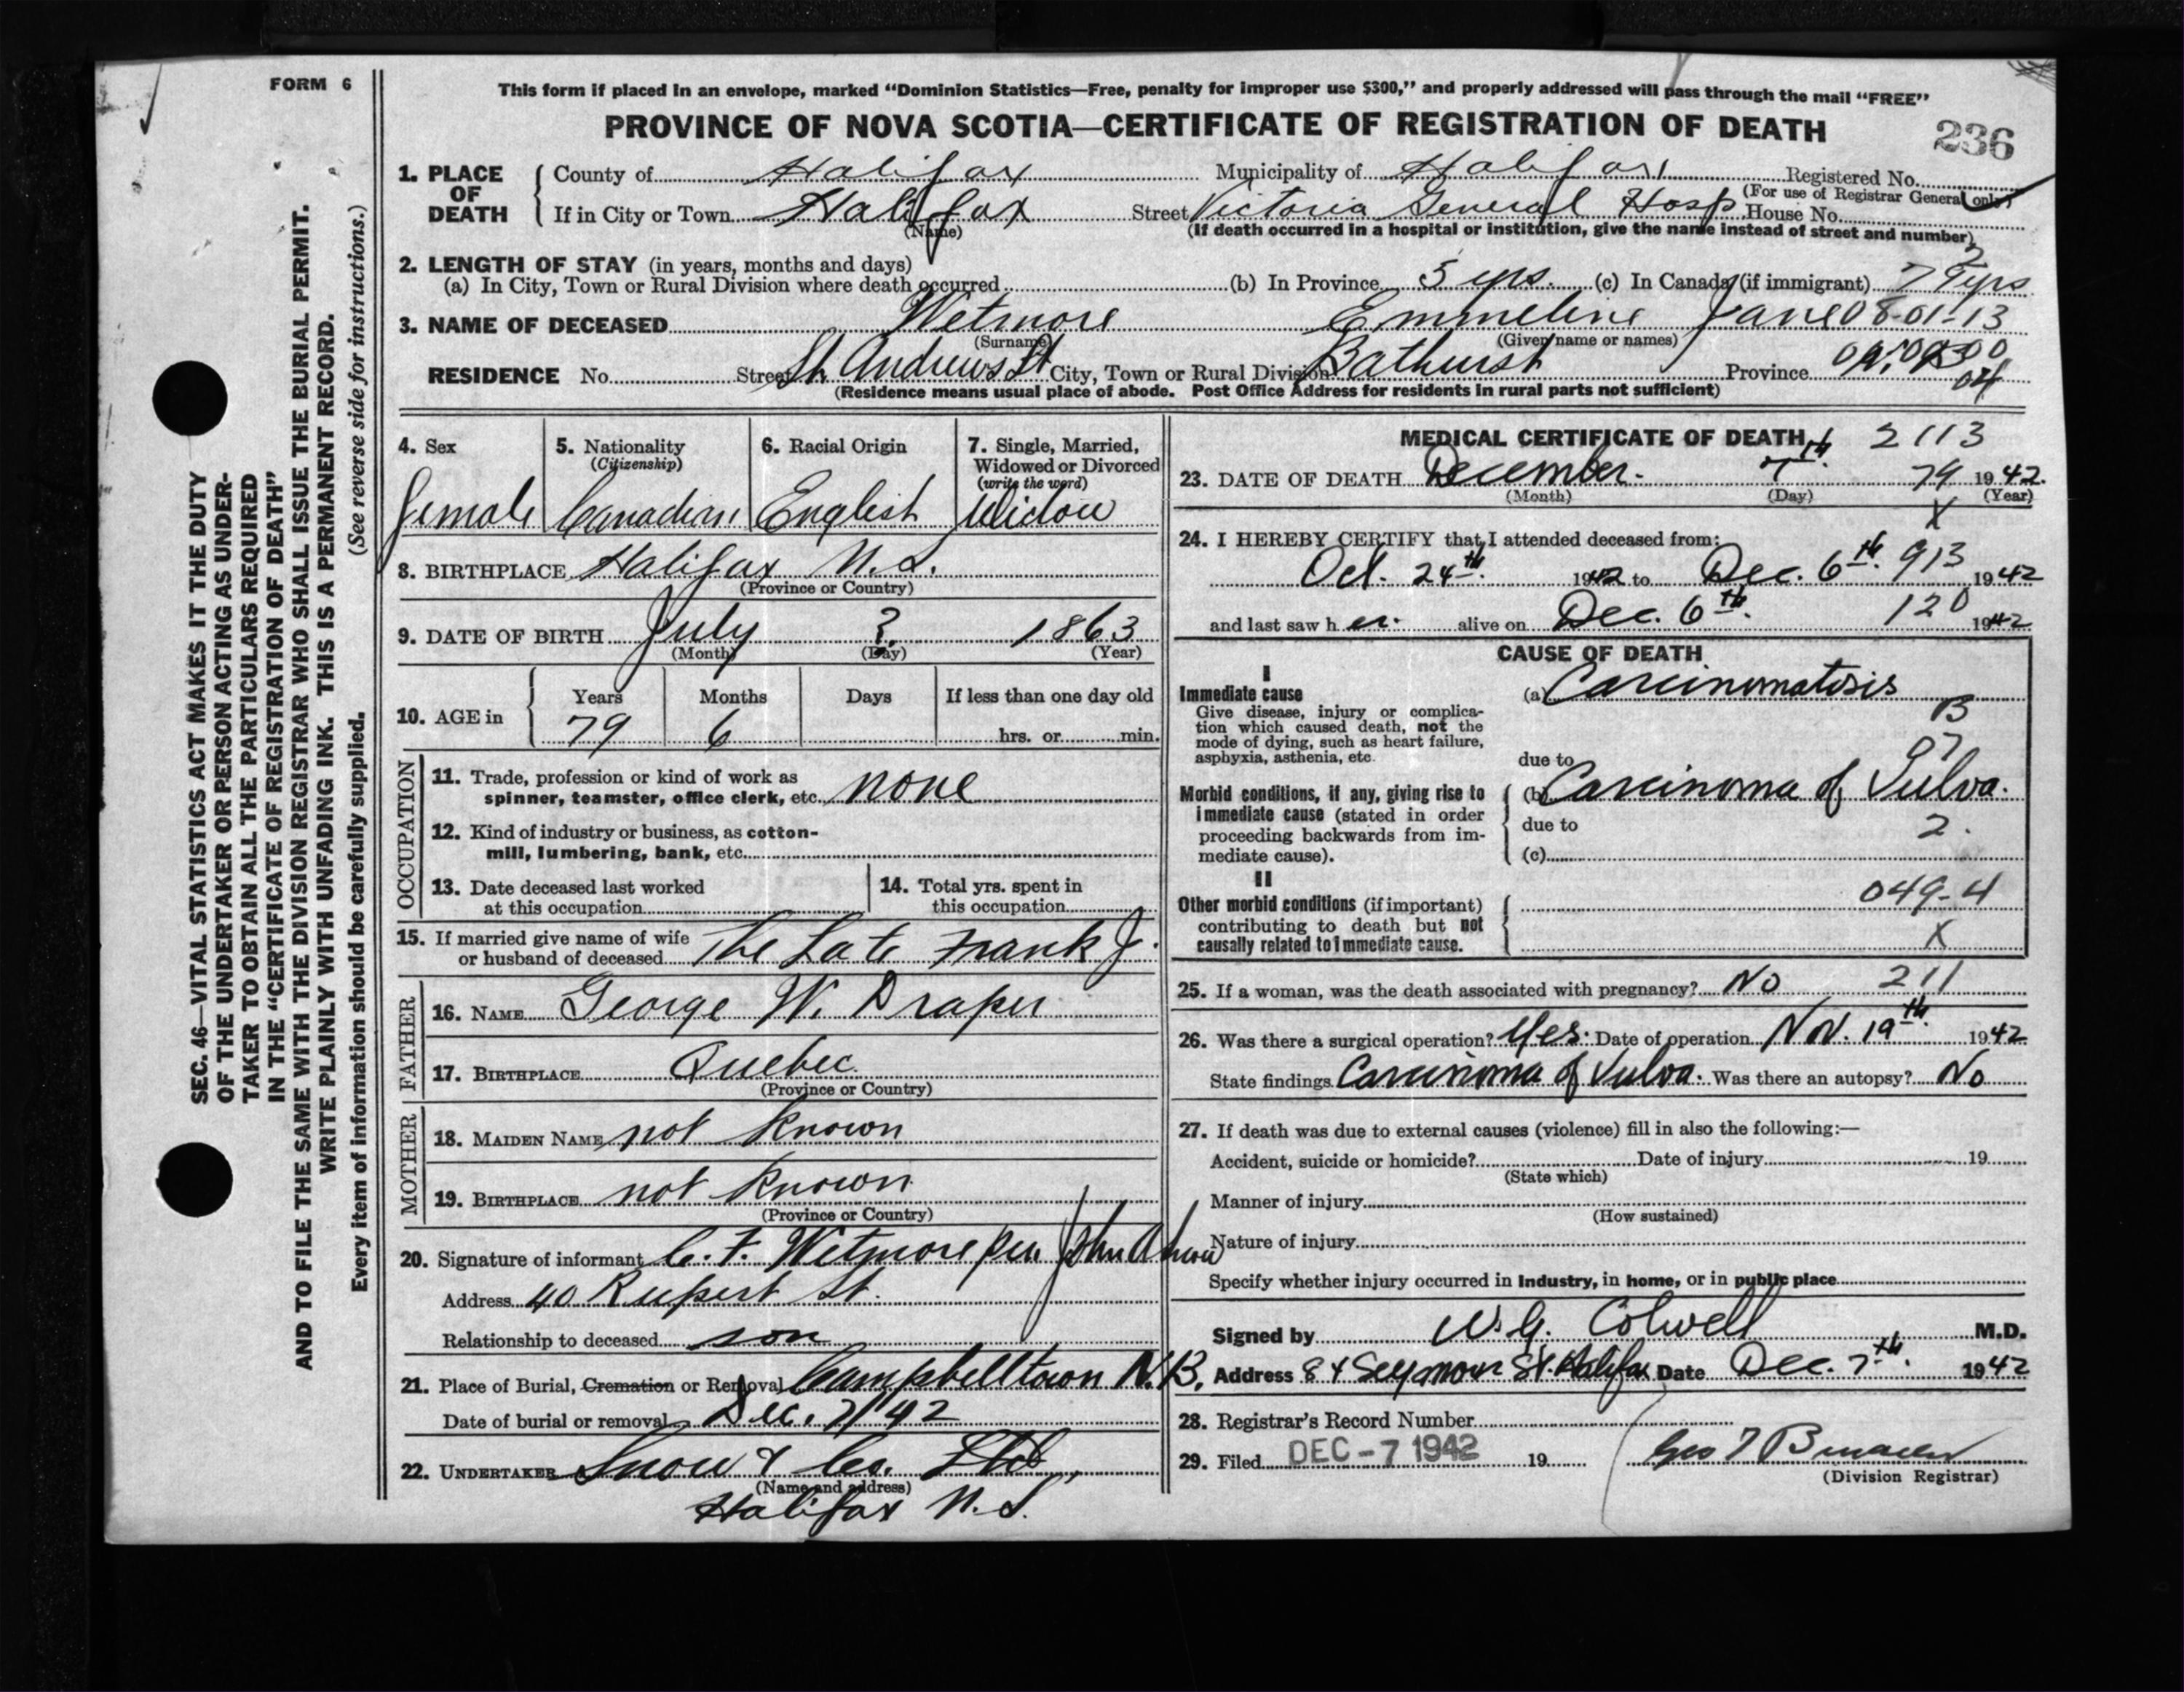 FORM 6
This form if placed in an envelope, marked “Dominion Statistics—Free, penalty for improper use $300,” and properly addressed will pass through the mail “FREE”
PROVINCE OF NOVA SCOTIA—CERTIFICATE OF REGISTRATION OF DEATH
236
1. PLACE OF DEATH
County of Halifax Municipality of Halifax Registered No.
(For use of Registrar General only)
If in City or Town Halifax Street Victoria General Hosp House No.
(Name) (If death occurred in a hospital or institution, give the name instead of street and number)
2. LENGTH OF STAY (in years, months and days)
(a) In City, Town or Rural Division where death occurred (b) In Province 5 yrs. (c) In Canada (if immigrant) 79 yrs
3. NAME OF DECEASED Wetmore Emmeline Jane 08-01-13
(Surname) (Given name or names)
RESIDENCE No. Street St. Andrews St City, Town or Rural Division Bathurst Province N.B.
04
(Residence means usual place of abode. Post Office Address for residents in rural parts not sufficient)
4. Sex 5. Nationality 6. Racial Origin 7. Single, Married,
(Citizenship) Widowed or Divorced
(write the word)
Female Canadian English Widow
8. BIRTHPLACE Halifax N.S.
(Province or Country)
9. DATE OF BIRTH July ? 1863
(Month) (Day) (Year)
10. AGE in Years Months Days If less than one day old
79 6 hrs. or min.
OCCUPATION
11. Trade, profession or kind of work as
spinner, teamster, office clerk, etc. none
12. Kind of industry or business, as cotton-
mill, lumbering, bank, etc.
13. Date deceased last worked 14. Total yrs. spent in
at this occupation this occupation
15. If married give name of wife
or husband of deceased The Late Frank J.
FATHER
16. NAME George W. Draper
17. BIRTHPLACE Quebec
(Province or Country)
MOTHER
18. MAIDEN NAME not known
19. BIRTHPLACE not known
(Province or Country)
20. Signature of informant C. F. Wetmore per John A Snow
Address 40 Rupert St.
Relationship to deceased son
21. Place of Burial, Cremation or Removal Campbelltown N.B.
Date of burial or removal Dec. 7/42
22. UNDERTAKER Snow & Co. Ltd,
(Name and address)
Halifax N.S.
MEDICAL CERTIFICATE OF DEATH 2113
23. DATE OF DEATH December 7th. 79 1942.
(Month) (Day) (Year)
X
24. I HEREBY CERTIFY that I attended deceased from:
Oct. 24th. 1942 to Dec. 6th. 913 1942
and last saw h er. alive on Dec. 6th. 120 1942
CAUSE OF DEATH
I
Immediate cause (a) Carcinomatosis
Give disease, injury or complica-
tion which caused death, not the
mode of dying, such as heart failure,
asphyxia, asthenia, etc.
B
07
due to
Morbid conditions, if any, giving rise to (b) Carcinoma of Vulva.
immediate cause (stated in order due to 2.
proceeding backwards from im-
mediate cause). (c)
II
Other morbid conditions (if important) 049-4
contributing to death but not
causally related to immediate cause. X
25. If a woman, was the death associated with pregnancy? No 211
26. Was there a surgical operation? Yes. Date of operation Nov. 19th. 1942
State findings Carcinoma of Vulva. Was there an autopsy? No
27. If death was due to external causes (violence) fill in also the following:—
Accident, suicide or homicide? Date of injury 19
(State which)
Manner of injury
(How sustained)
Nature of injury
Specify whether injury occurred in Industry, in home, or in public place
Signed by W. G. Colwell M.D.
Address 84 Seymour St. Halifax Date Dec. 7th. 1942
28. Registrar's Record Number
29. Filed DEC -7 1942 19 Geo
(Division Registrar)
SEC. 46—VITAL STATISTICS ACT MAKES IT THE DUTY
OF THE UNDERTAKER OR PERSON ACTING AS UNDER-
TAKER TO OBTAIN ALL THE PARTICULARS REQUIRED
IN THE “CERTIFICATE OF REGISTRATION OF DEATH”
AND TO FILE THE SAME WITH THE DIVISION REGISTRAR WHO SHALL ISSUE THE BURIAL PERMIT.
WRITE PLAINLY WITH UNFADING INK. THIS IS A PERMANENT RECORD.
Every item of information should be carefully supplied. (See reverse side for instructions.)